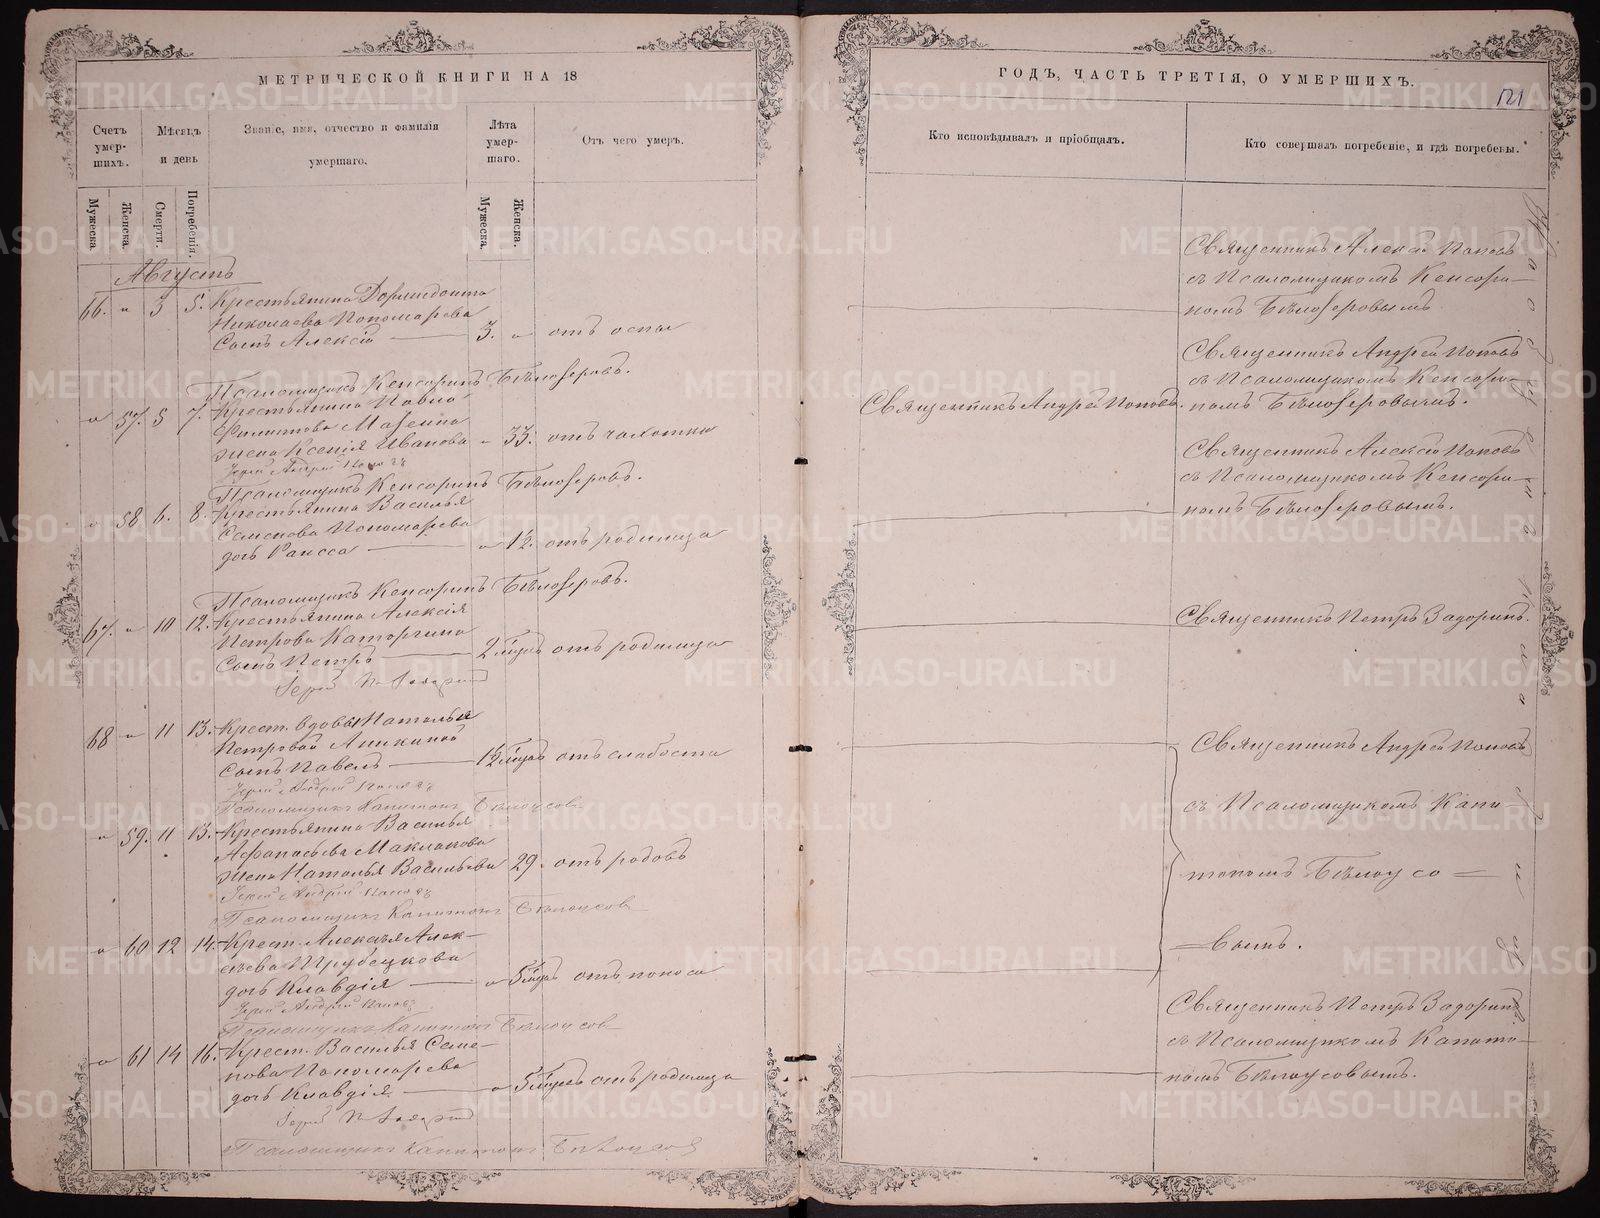 МЕТРИЧЕСКОЙ КНИГИ НА 18
Счетъ умер-шихъ.
Мѣсяцъ и день
Званіе, имя, отчество и фамилія умершаго.
Лѣта умер-шаго.
Отъ чего умеръ.
Мужеска.
Женска.
Смерти.
Погребенія.
Мужеска.
Женска.
Августъ
66. " 3 5. Крестьянина Дормидонта
Николаева Пономарева
Сынъ Алексій 3. " отъ оспы
Псаломщикъ Кенсоринъ Бѣлозеровъ.
" 57. 5 7. Крестьянина Павла
Филиппова Мазеина
жена Ксенія Иванова " 33. отъ чахотки
Іерей Андрей Поповъ
Псаломщикъ Кенсоринъ Бѣлозеровъ.
" 58 6. 8. Крестьянина Василья
Семенова Пономарева
дочь Раисса " 12. отъ родимца
Псаломщикъ Кенсоринъ Бѣлозеровъ.
67. " 10 12. Крестьянина Алексія
Петрова Каторгина
Сынъ Петръ 2 отъ родимца
Іерей П. Задоринъ
68 " 11 13. Крест. вдовы Натальи
Петровой Аникиной
Сынъ Павелъ 12 отъ слабости
Іерей Андрей Поповъ
Псаломщикъ Капитонъ Бѣлоусовъ
" 59. 11 13. Крестьянина Василья
Афанасьева Маклакова
жена Наталья Васильева 29. отъ родовъ
Іерей Андрей Поповъ
Псаломщикъ Капитонъ Бѣлоусовъ
" 60 12 14. Крест. Алексѣя Алек-
сѣева Трубецкова
дочь Клавдія " 5 отъ поноса
Іерей Андрей Поповъ
Псаломщикъ Капитонъ Бѣлоусовъ
" 61 14 16. Крест. Василья Семе-
нова Пономарева
дочь Клавдія " 5 отъ родимца
Іерей П. Задоринъ
Псаломщикъ Капитонъ Бѣлоусовъ
ГОДЪ, ЧАСТЬ ТРЕТІЯ, О УМЕРШИХЪ.
121
Кто исповѣдывалъ и пріобщалъ.
Кто совершалъ погребеніе, и гдѣ погребены.
Священникъ Алексій Поповъ
съ Псаломщикомъ Кенсори-
номъ Бѣлозеровымъ.
Священникъ Андрей Поповъ.
Священникъ Андрей Поповъ
съ Псаломщикомъ Кенсори-
номъ Бѣлозеровымъ.
Священникъ Алексій Поповъ
съ Псаломщикомъ Кенсори-
номъ Бѣлозеровымъ.
Священникъ Петръ Задоринъ.
Священникъ Андрей Поповъ
съ Псаломщикомъ Капи
тономъ Бѣлоусо
вымъ.
Священникъ Петръ Задоринъ
съ Псаломщикомъ Капито-
номъ Бѣлоусовымъ.
METRIKI.GASO-URAL.RU